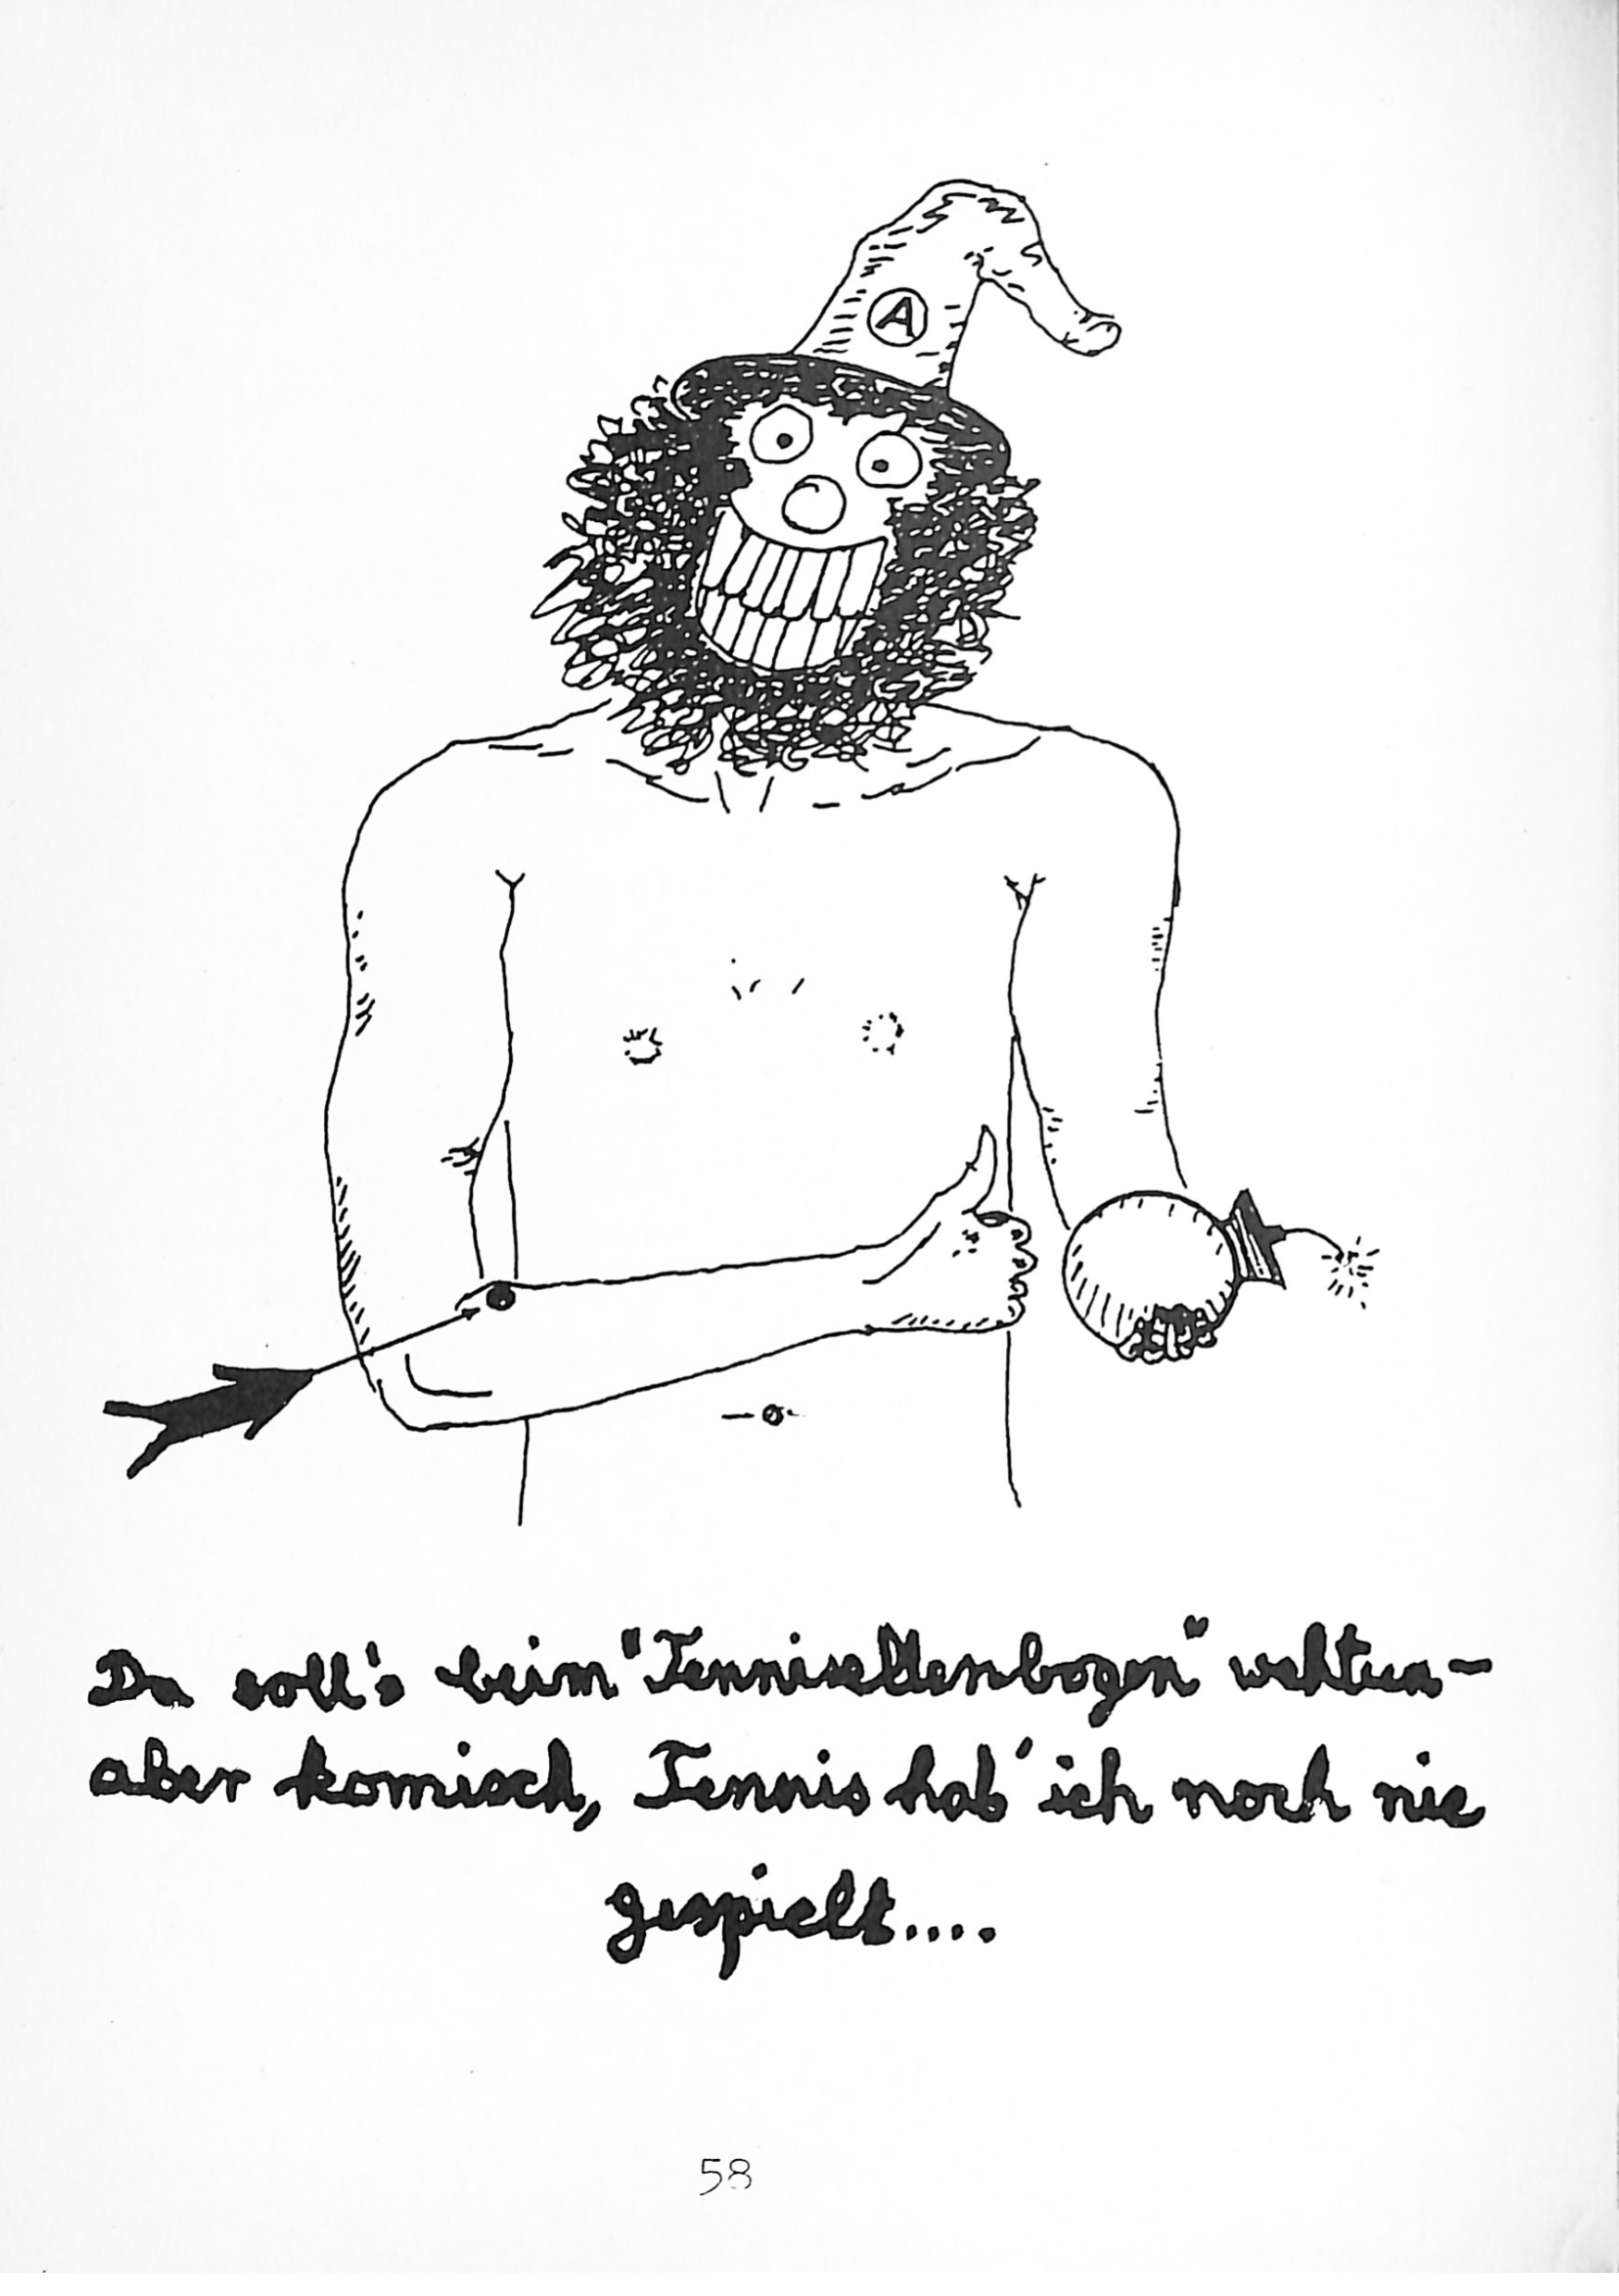 A
Da soll's beim "Tennisellenbogen" wehtun –
aber komisch, Tennis hab' ich noch nie
gespielt....
58